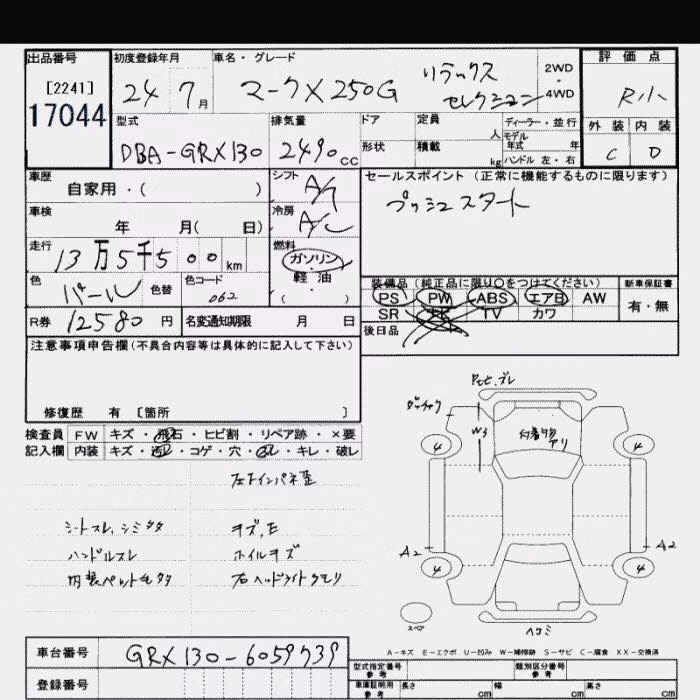 出品番号
[2241]
17044
初度登録年月
24 7月
車名・グレード
マークX 250G リラックスセレクション
2WD
・
4WD
評価点
R小
外装 内装
C D
型式
DBA-GRX130
排気量
2490cc
ドア
形状
定員 人
積載 kg
ディーラー・並行
モデル年式 年
ハンドル 左・右
車歴
自家用・( )
車検
年 月( 日)
走行
13万5千500km
色
パール
色替
色コード
062
シフト
A/T
冷房
A/C
燃料
ガソリン・
軽油・
( )
セールスポイント (正常に機能するものに限ります)
プッシュスタート
装備品 (純正品に限り○をつけてください)
PS PW ABS エアB AW
SR ナビ TV カワ
新車保証書
有・無
後日品
R券 12580円
名変通知期限 月 日
注意事項申告欄(不具合内容等は具体的に記入して下さい)
修復歴 有 〔箇所 〕
検査員
記入欄
FW キズ・飛石・ヒビ割・リペア跡・×要
内装 キズ・汚レ・コゲ・穴・スレ・キレ・破レ
左下インパネ歪
シートスレ、シミ多々
キズ、E
ハンドルスレ
ホイルキズ
内装ペット毛多々
右ヘッドライトクモリ
W3
付着物アリ
4 4
A2 A2
4 4
スペア
ヘコミ
A-キズ E-エクボ U-凹み W-補修跡 S-サビ C-腐食 XX-交換済
車台番号
GRX130-6059739
登録番号
型式指定番号
参考
類別区分番号
参考
車庫証明用
参考
長さ cm 幅 cm 高さ cm